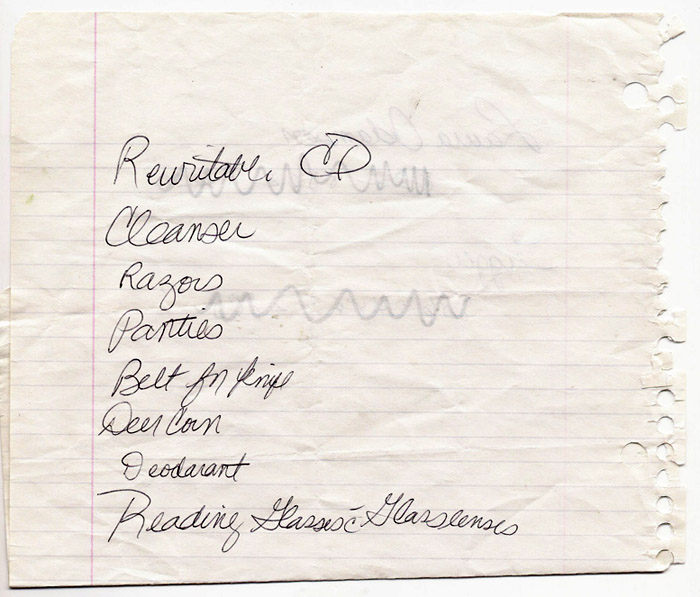 Rewritable CD
Cleanser
Razors
Panties
Belt for knife
Deer Corn
Deodarant
Reading Glasses c̄ Glass lenses